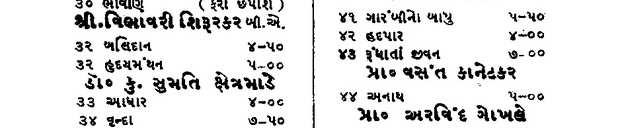 ૩૦ ભાવાણ (ફરી છપાશે)
શ્રી. વિભાવરી શિરૂરકર બી.એ.
૩૨ બલિદાન ૪-૫૦
૩૨ હૃદયમંથન ૫-૦૦
ડૉ૦ કુ. સુમતિ ક્ષેત્રમાડે
૩૩ આધાર ૪-૦૦
૩૪ વૃન્દા ૭-૫૦
૪૧ ગારંબીનો બાપુ ૫-૫૦
૪૨ હદપાર ૪-૦૦
૪૩ રૂંધાતાં જીવન ૭-૦૦
પ્રા૦ વસંત કાનેટકર
૪૪ અનાથ ૫-૦૦
પ્રા૦ અરવિંદ ગોખલે